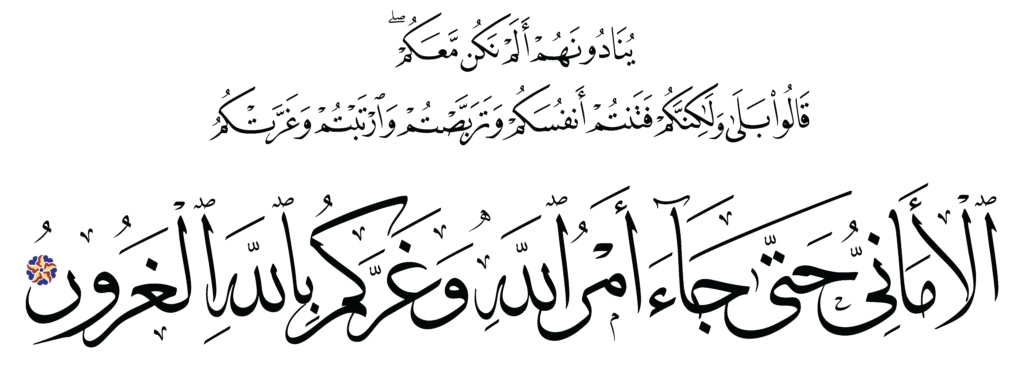 يُنَادُونَهُمْ أَلَمْ نَكُن مَّعَكُمْ ۖ
قَالُوا۟ بَلَىٰ وَلَٰكِنَّكُمْ فَتَنتُمْ أَنفُسَكُمْ وَتَرَبَّصْتُمْ وَٱرْتَبْتُمْ وَغَرَّتْكُمُ
ٱلْأَمَانِىُّ حَتَّىٰ جَآءَ أَمْرُ ٱللَّهِ وَغَرَّكُم بِٱللَّهِ ٱلْغَرُورُ